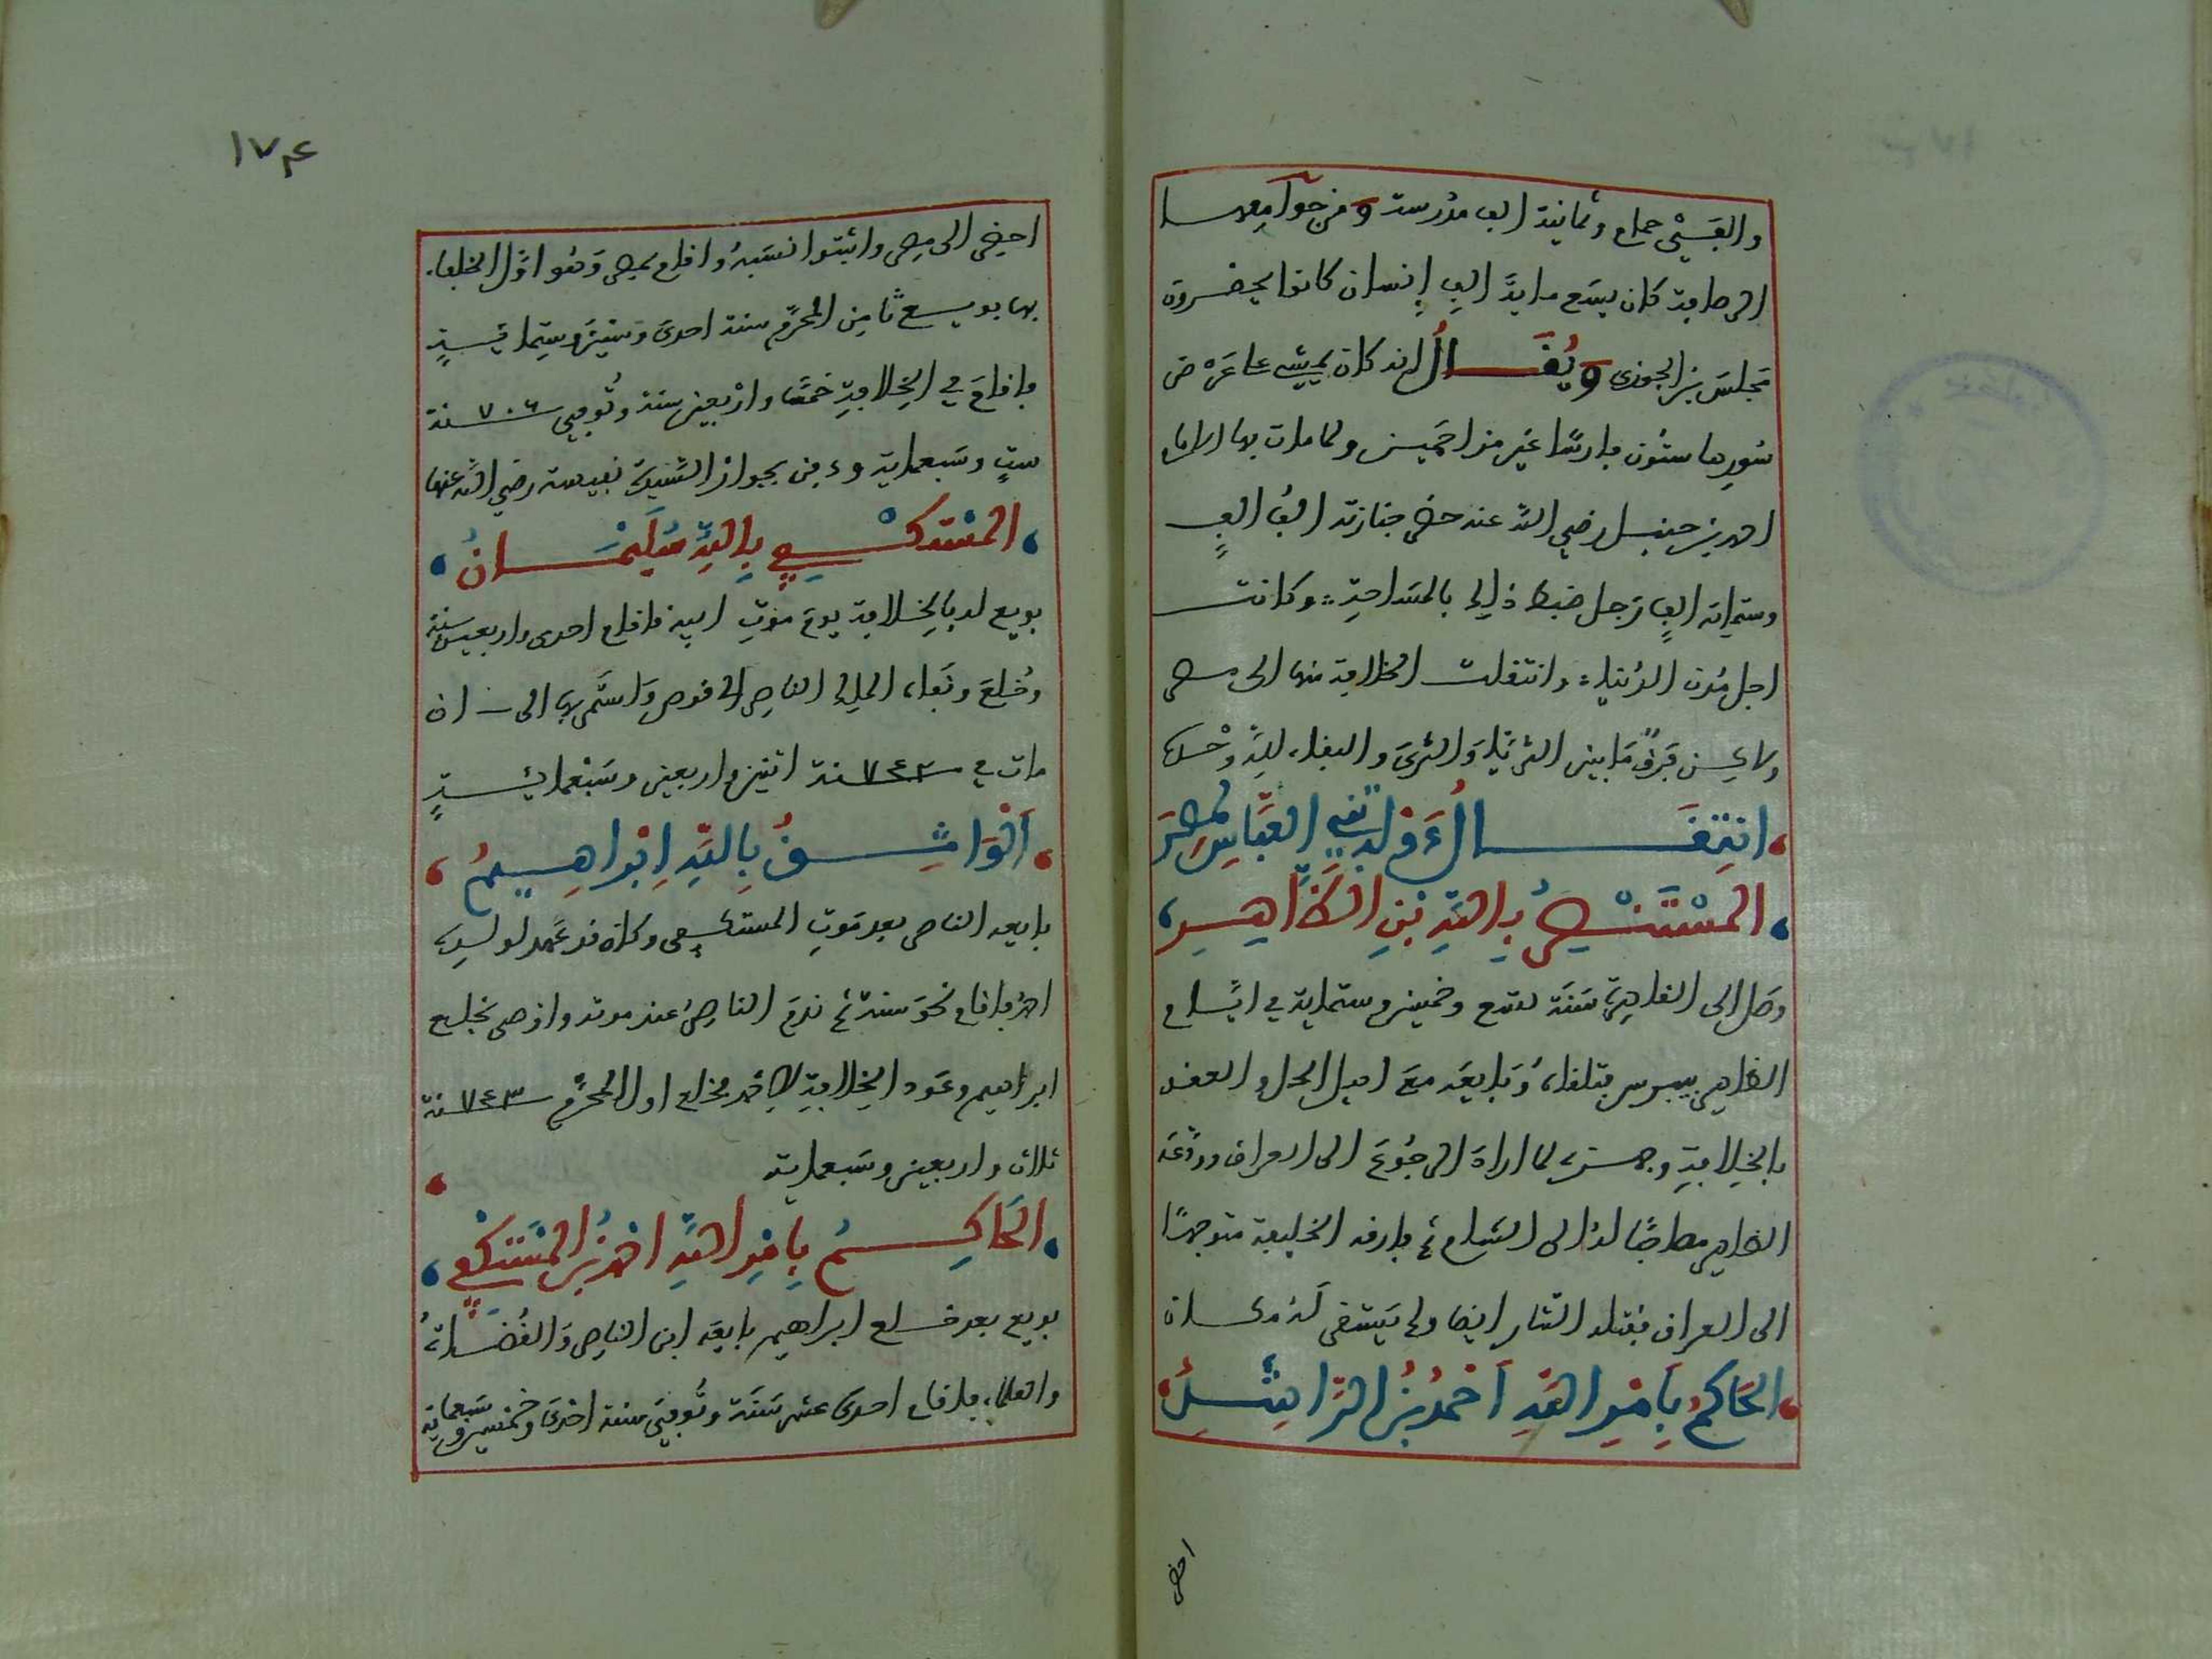 والفَيْ حمام وثمانية الف مدرسة ومن جوامعها
الرصافة كان يسع ماية الف إنسان كانوا يحضرون
مجلس بن الجوزى ويُقَال انه كان يمشى على عرض
سُورها ستون فارسًا غير مزاحمين ولما مات بها الامام
احمد بن حنبل رضي الله عنه حضر جنازته الفُ الفٍ
وستماية الفٍ رجل ضبط ذلك بالمساحة وكانت
اجل مُدن الدُنيا وانتقلت الخلافة منها الى مصر
ولا يحسن فرق مابين الثريّا والثرى والبقاء لله وحده
انتِقَال دَوْلة بَني العَبّاسِ لمِصْرَ
المسْتَنْصِرُ بِاللَّهِ بْنِ الظَّاهِرِ
وصل الى القاهرة سَنَة تسع وخمسين وستماية في ايّام
الظاهر بيبرس فتلقاهُ وبايعه مع اهل الحل والعقد
بالخلافةِ وجهزه لما اراد الرجُوعَ الى العراق وودّعَه
الظاهر مصاحبًا له الى الشام ثم فارقه الخليفة متوجهًا
الى العراق فقتله التتار ايضا ولم يستقر له مكان
الحَاكمُ بِأمْرِ اللهِ أحْمَدُ بْنُ الرَّاشِدِ
احضر
١٧٤
احضر الى مصر واثبتوا نسَبهُ واقام بمصر وَهُو اوّل الخلفاء
بها بويع ثامِن المحرّم سنة احدى وستين وستماية
فاقام في الخلافةِ خمسًا واربعين سنة وتُوفي سنة ٧٠٦
ستٍ وسَبعماية ودفن بجوار السَّيدة نفيسة رضي الله عنها
المسْتَكْفِي بِاللهِ سُلَيْمَانُ
بويع له بالخِلافة يوم موتِ ابيه فاقام احدى واربعين سنة
وخُلعَ ونَفاه الملك الناصر الى قوص واستمر بها الى ان
مات في سنة ٧٤٢ اثنين واربعين وسَبْعمايةٍ
اَلْوَاثِقُ بِاللهِ اِبْرَاهِيمُ
بايعه الناصر بعد موتِ المستكفى وكان قد عَهد لولده
احمد فاقام نحو سنة ثم ندمَ الناصرُ عند موته واوصى بخلع
ابراهيم وعَود الخِلافةِ لاحمد فخلع اول المحرّم سنة ٧٤٣
ثلاث واربعين وسَبعماية
الحَاكِمُ بِأمْرِ اللهِ احْمد بْنُ المسْتَكْفِي
بويع بعد خلع ابراهيم بايعه ابن الناصر والقُضَاةُ
والعلماء فاقام احدى عشر سَنَة وتُوفيَ سنة احْدَى وخمسين وسَبعماية